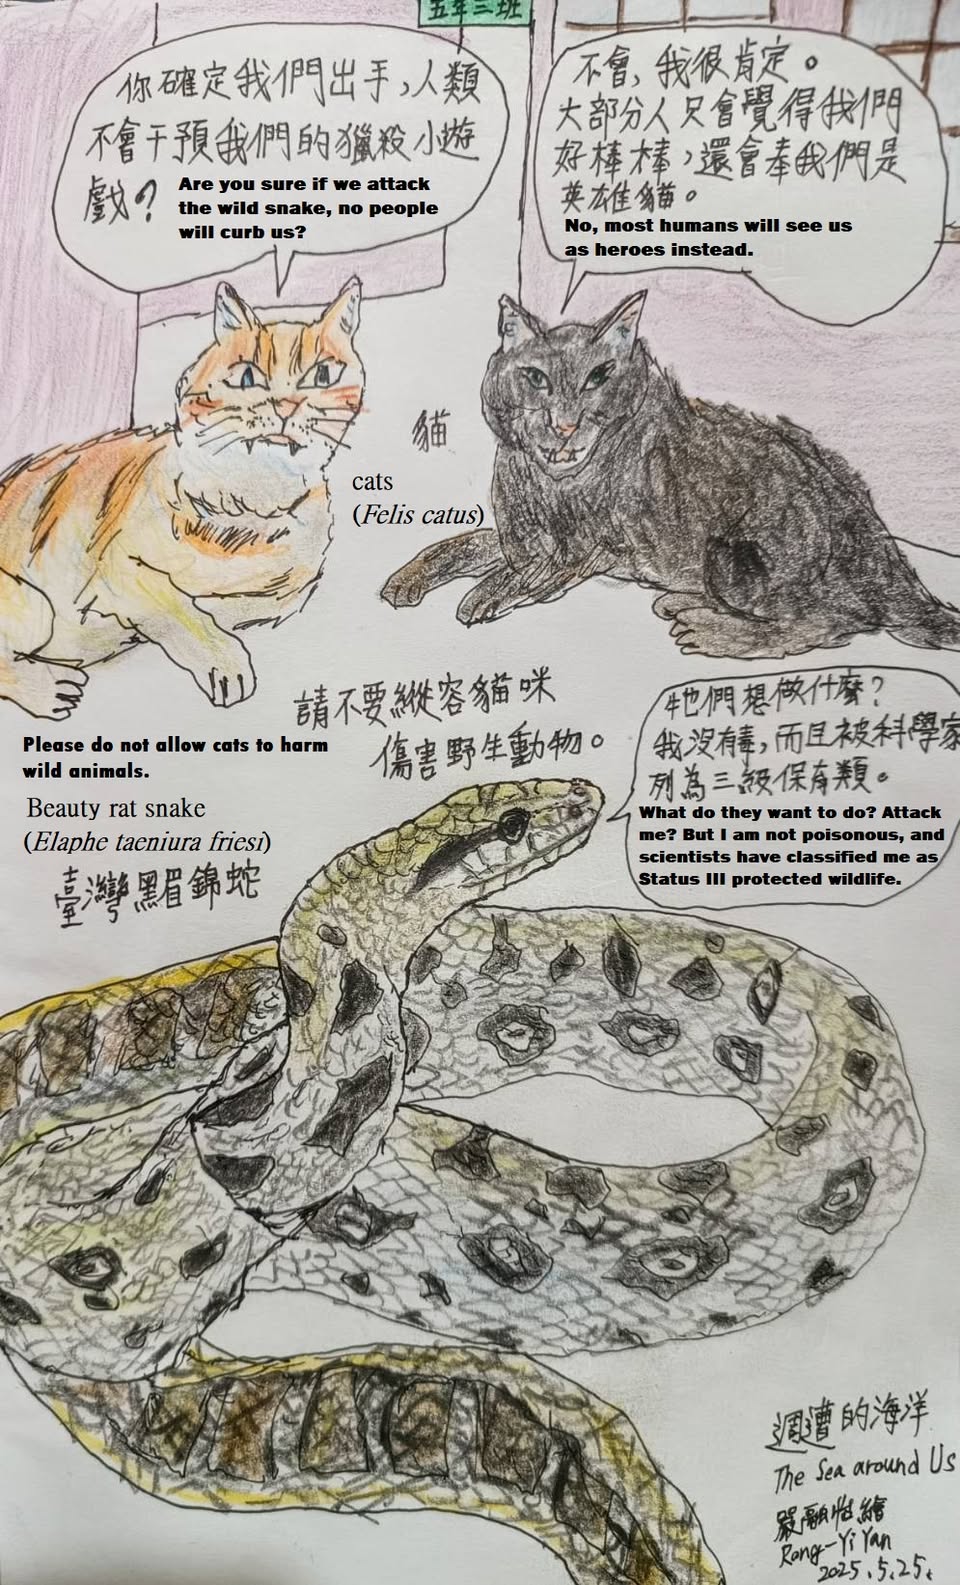 五年三班
你確定我們出手，人類
不會干預我們的獵殺小遊
戲？
Are you sure if we attack
the wild snake, no people
will curb us?
不會，我很肯定。
大部分人只會覺得我們
好棒棒，還會奉我們是
英雄貓。
No, most humans will see us
as heroes instead.
貓
cats
(Felis catus)
請不要縱容貓咪
傷害野生動物。
Please do not allow cats to harm
wild animals.
牠們想做什麼？
我沒有毒，而且被科學家
列為三級保育類。
What do they want to do? Attack
me? But I am not poisonous, and
scientists have classified me as
Status III protected wildlife.
Beauty rat snake
(Elaphe taeniura friesi)
臺灣黑眉錦蛇
週遭的海洋
The Sea around Us
嚴融怡繪
Rong-Yi Yan
2025.5.25.